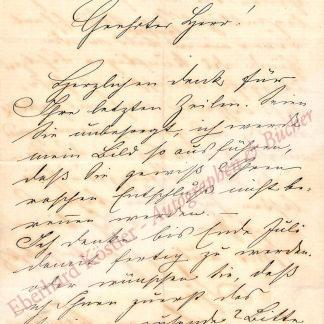 Geehrter Herr!
Herzlichen Dank für
Ihre letzten Zeilen. Seien
Sie unbesorgt, ich werde
mein Bild so ausführen,
daß Sie gewiß Ihren
raschen Entschluß nicht be-
reuen werden. —
Ich denke bis Ende Juli
damit fertig zu werden.
oder wünschen Sie, daß
ich Ihnen zuerst das
sende? Bitte
Eberhard Köstler - Autographen & Bücher